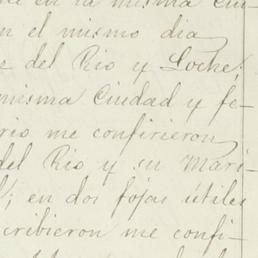 en la misma Ciu-
en el mismo dia
e del Rio y Loche;
misma Ciudad y fe-
rio me confirieron
del Rio y su Mari-
; en dos fojas útiles
cribieron me confi-